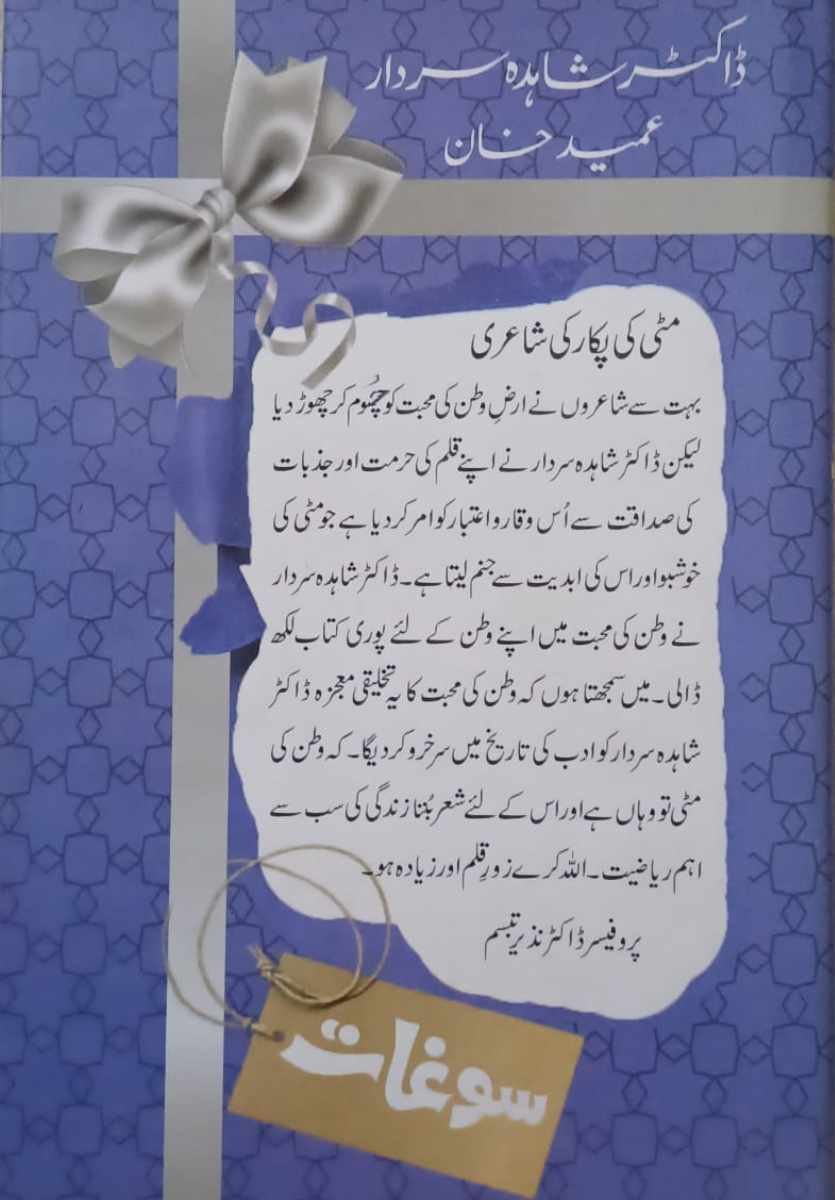 ڈاکٹر شاہدہ سردار
عمید خان
مٹی کی پکار کی شاعری
بہت سے شاعروں نے ارضِ وطن کی محبت کو چُھوم کر چھوڑ دیا
لیکن ڈاکٹر شاہدہ سردار نے اپنے قلم کی حرمت اور جذبات
کی صداقت سے اُس وقار و اعتبار کو امر کر دیا ہے جو مٹی کی
خوشبو اور اس کی ابدیت سے جنم لیتا ہے۔ ڈاکٹر شاہدہ سردار
نے وطن کی محبت میں اپنے وطن کے لئے پوری کتاب لکھ
ڈالی۔ میں سمجھتا ہوں کہ وطن کی محبت کا یہ تخلیقی معجزہ ڈاکٹر
شاہدہ سردار کو ادب کی تاریخ میں سرخرو کر دیگا۔ کہ وطن کی
مٹی تو وہاں ہے اور اس کے لئے شعر بُننا زندگی کی سب سے
اہم ریاضیت۔ اللہ کرے زورِ قلم اور زیادہ ہو۔
پروفیسر ڈاکٹر نذیر تبسم
سوغات